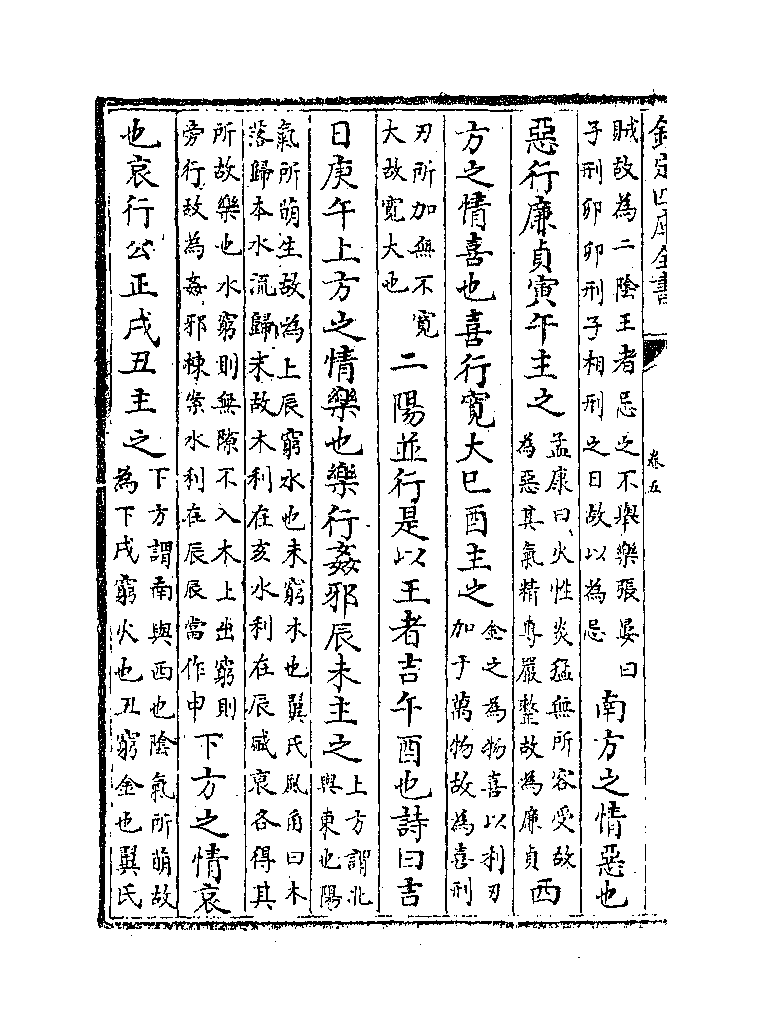 欽定四庫全書
卷五
賊故為二陰王者忌之不舉樂張晏曰
子刑卯卯刑子相刑之日故以為忌
南方之情惡也
惡行廉貞寅午主之
孟康曰火性炎猛無所容受故
為惡其氣精專嚴整故為廉貞
西
方之情喜也喜行寛大巳酉主之
金之為物喜以利刃
加于萬物故為喜刑
刃所加無不寛
大故寛大也
二陽並行是以王者吉午酉也詩曰吉
日庚午上方之情樂也樂行姦邪辰未主之
上方謂北
與東也陽
氣所萌生故為上辰窮水也未窮木也翼氏風角曰木
落歸本水流歸末故木利在亥水利在辰盛衰各得其
所故樂也水窮則無隙不入木上出窮則
旁行故為姦邪棟案水利在辰辰當作申
下方之情哀
也哀行公正戌丑主之
下方謂南與西也陰氣所萌故
為下戌窮火也丑窮金也翼氏